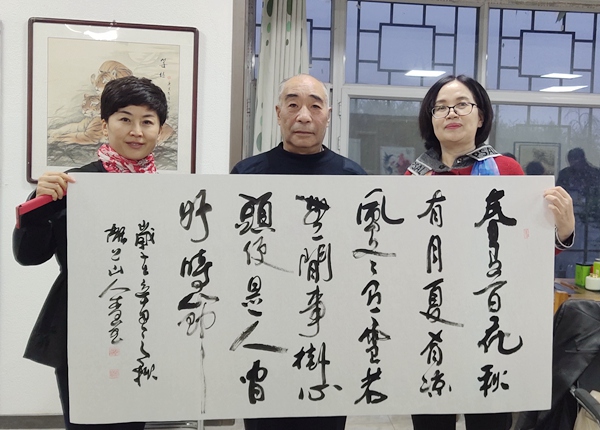 春有百花秋
有月夏有凉
風冬有雪若
無閒事掛心
頭便是人間
好時節
歲在辛丑之秋
山人